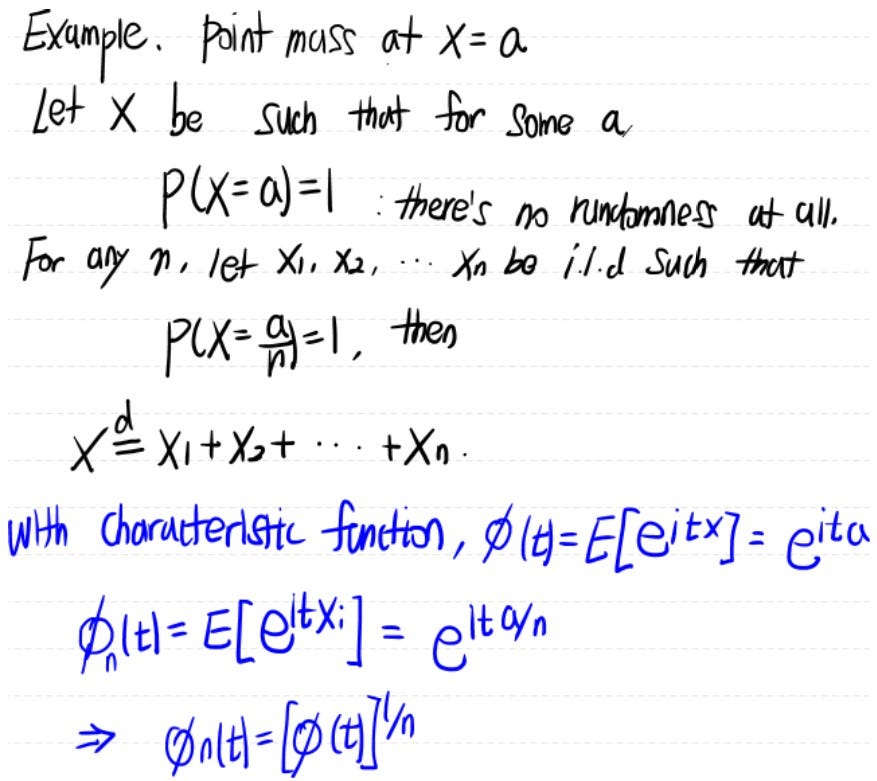 Example. point mass at X = a
Let X be such that for some a,
P(X = a) = 1 : there's no randomness at all.
For any n, let X₁, X₂, ⋯ Xₙ be i.i.d such that
P(X = a/n) = 1, then
X =ᵈ X₁ + X₂ + ⋯ + Xₙ.
with characteristic function, ϕ(t) = E[e^{itx}] = e^{ita}
ϕₙ(t) = E[e^{itXᵢ}] = e^{ita/n}
⇒ ϕₙ(t) = [ϕ(t)]^{1/n}